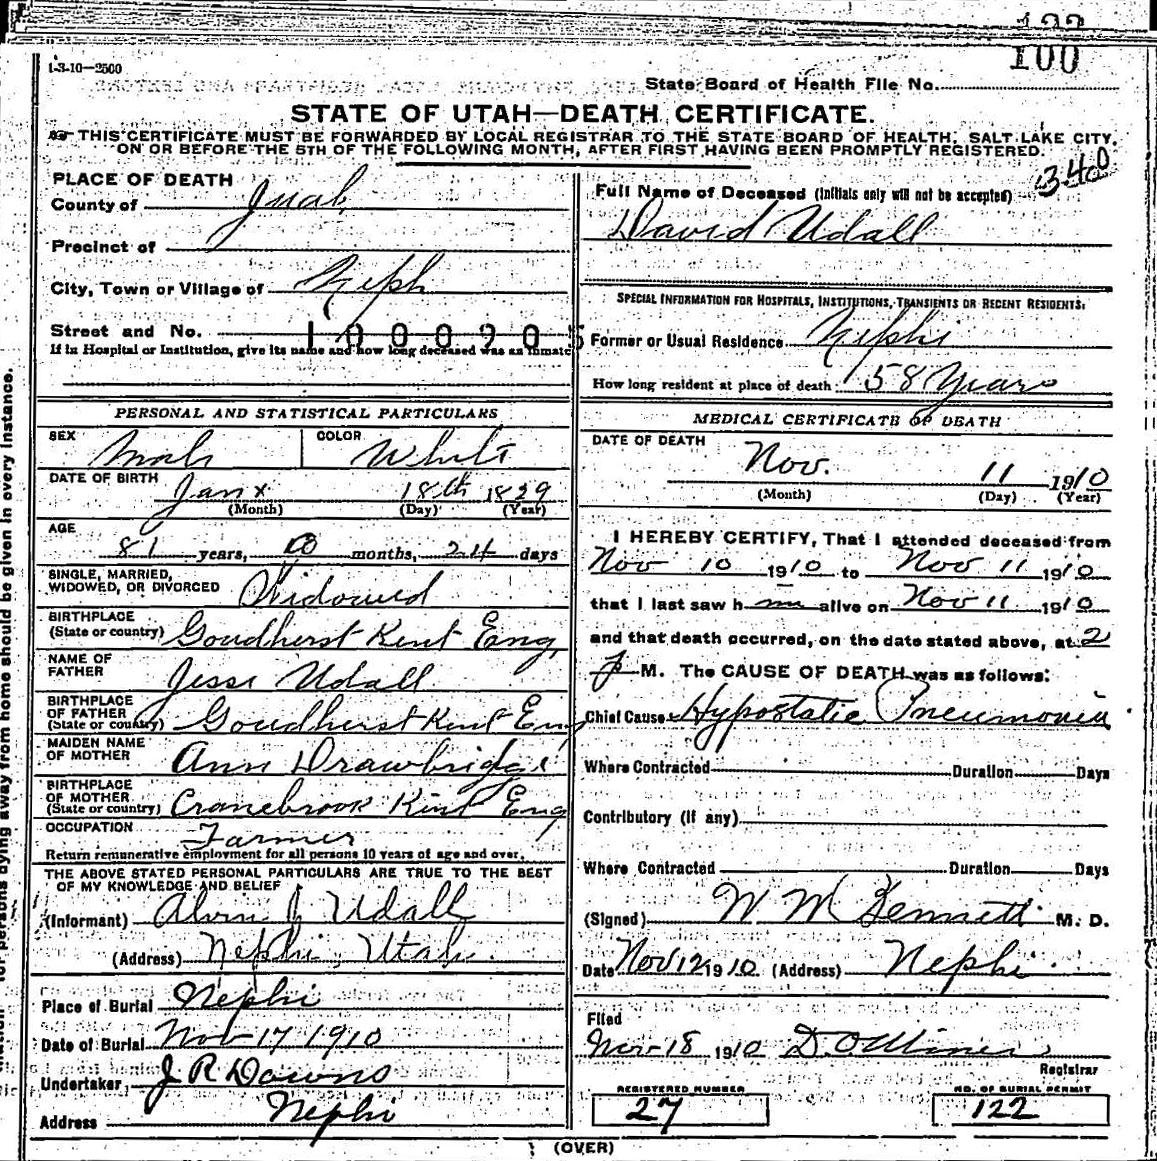 100
1-3-10—2500
State Board of Health File No.
STATE OF UTAH—DEATH CERTIFICATE.
THIS CERTIFICATE MUST BE FORWARDED BY LOCAL REGISTRAR TO THE STATE BOARD OF HEALTH, SALT LAKE CITY,
ON OR BEFORE THE 5TH OF THE FOLLOWING MONTH, AFTER FIRST HAVING BEEN PROMPTLY REGISTERED.
340
PLACE OF DEATH
County of Juab
Precinct of
City, Town or Village of Neph
Street and No. 1000205
If in Hospital or Institution, give its name and how long deceased was an inmate
PERSONAL AND STATISTICAL PARTICULARS
SEX Male COLOR White
DATE OF BIRTH Jan x 18th 1829
(Month) (Day) (Year)
AGE
81 years, months, 24 days
SINGLE, MARRIED,
WIDOWED, OR DIVORCED Widowed
BIRTHPLACE
(State or country) Goudherst Kent Eng,
NAME OF
FATHER Jesse Udall
BIRTHPLACE
OF FATHER
(State or country) Goudherst Kent Eng
MAIDEN NAME
OF MOTHER Ann Drawbridge
BIRTHPLACE
OF MOTHER
(State or country) Cranebrook Kent Eng
OCCUPATION Farmer
Return remunerative employment for all persons 10 years of age and over.
THE ABOVE STATED PERSONAL PARTICULARS ARE TRUE TO THE BEST
OF MY KNOWLEDGE AND BELIEF
(Informant) Alvin J Udall
(Address) Nephi, Utah.
Place of Burial Nephi
Date of Burial Nov 17 1910
Undertaker J R Downs
Address Nephi
Full Name of Deceased (Initials only will not be accepted)
David Udall
SPECIAL INFORMATION FOR HOSPITALS, INSTITUTIONS, TRANSIENTS OR RECENT RESIDENTS:
Former or Usual Residence Nephi
How long resident at place of death: 58 Years
MEDICAL CERTIFICATE OF DEATH
DATE OF DEATH
Nov. 11 1910
(Month) (Day) (Year)
I HEREBY CERTIFY, That I attended deceased from
Nov 10 1910 to Nov 11 1910
that I last saw h im alive on Nov 11 1910
and that death occurred, on the date stated above, at 2
P M. The CAUSE OF DEATH was as follows:
Chief Cause Hypostatic Pneumonia
Where Contracted Duration Days
Contributory (If any)
Where Contracted Duration Days
(Signed) W M Bennett M. D.
Date Nov 12 1910 (Address) Nephi
Filed
Nov 18 1910 D. O. Miner
Registrar
REGISTERED NUMBER NO. OF BURIAL PERMIT
27 122
(OVER)
for persons dying away from home should be given in every instance.